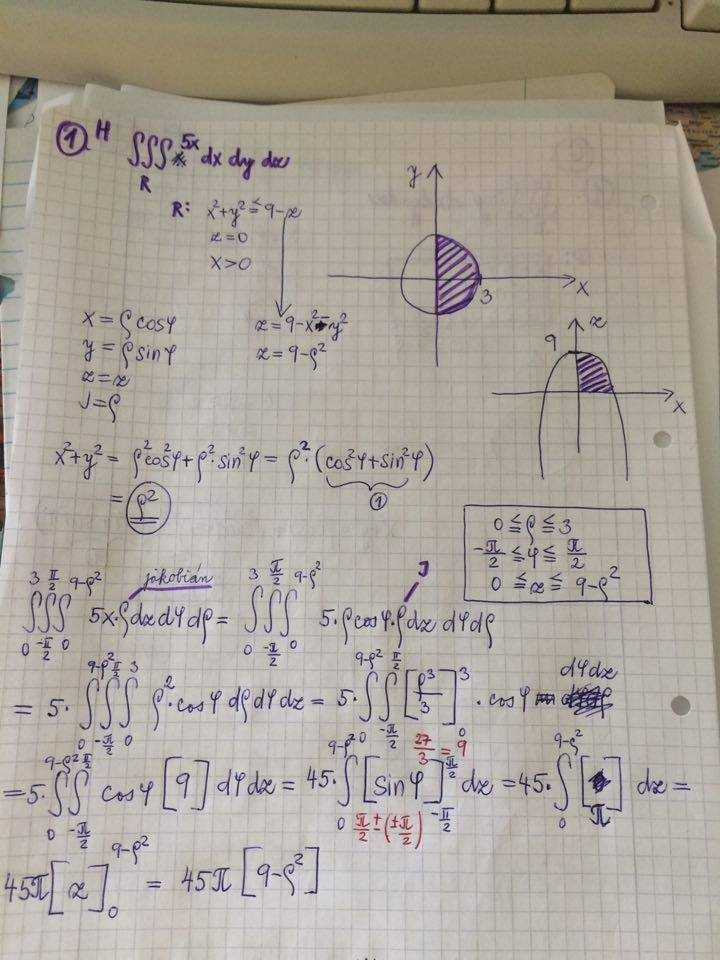 ① H ∫∫∫ 5x dx dy dz
R
R: x²+y² ≤ 9-z
z=0
x>0
y
x
3
x = ρ cosφ
y = ρ sinφ
z = z
J = ρ
z = 9-x²-y²
z = 9-ρ²
9
z
x
x²+y² = ρ²cos²φ + ρ²·sin²φ = ρ²·(cos²φ+sin²φ)
①
= ρ²
0 ≦ ρ ≦ 3
-π/2 ≦ φ ≦ π/2
0 ≦ z ≦ 9-ρ²
jakobián
J
∫₀³ ∫_{-π/2}^{π/2} ∫₀^{9-ρ²} 5x·ρ dz dφ dρ = ∫₀³ ∫_{-π/2}^{π/2} ∫₀^{9-ρ²} 5·ρcosφ·ρ dz dφ dρ
= 5·∫₀^{9-ρ²} ∫_{-π/2}^{π/2} ∫₀³ ρ²·cosφ dρ dφ dz = 5·∫₀^{9-ρ²} ∫_{-π/2}^{π/2} [ρ³/3]₀³ ·cosφ dφ dz
27/3 = 9
= 5·∫₀^{9-ρ²} ∫_{-π/2}^{π/2} cosφ [9] dφ dz = 45·∫₀^{9-ρ²} [sinφ]_{-π/2}^{π/2} dz = 45·∫₀^{9-ρ²} [π] dz =
45π[z]₀^{9-ρ²} = 45π[9-ρ²]